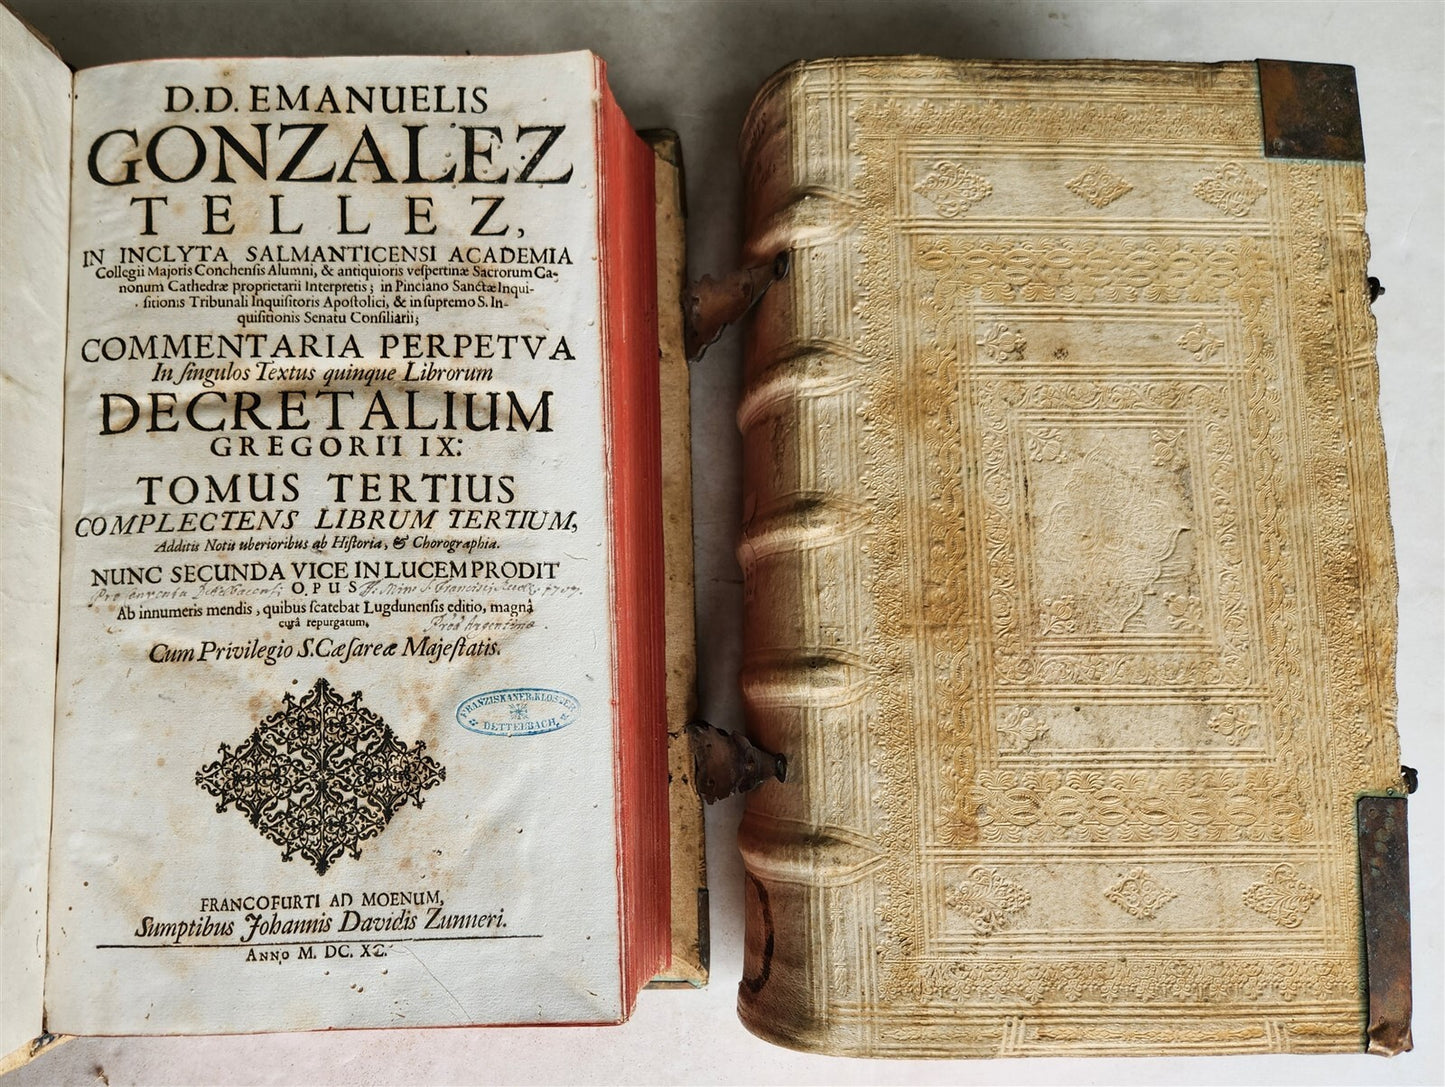 D. D. EMANUELIS
GONZALEZ
TELLEZ,
IN INCLYTA SALMANTICENSI ACADEMIA
Collegii Majoris Conchenſis Alumni, & antiquioris veſpertinæ Sacrorum Ca-
nonum Cathedræ proprietarii Interpretis; in Pinciano Sanctæ Inqui-
ſitionis Tribunali Inquiſitoris Apoſtolici, & in ſupremo S. In-
quiſitionis Senatu Conſiliarii;
COMMENTARIA PERPETVA
In ſingulos Textus quinque Librorum
DECRETALIUM
GREGORII IX:
TOMUS TERTIUS
COMPLECTENS LIBRUM TERTIUM,
Additis Notis uberioribus ab Hiſtoria, & Chorographia.
NUNC SECUNDA VICE IN LUCEM PRODIT
OPUS
Ab innumeris mendis, quibus ſcatebat Lugdunenſis editio, magnâ
curâ repurgatum.
Cum Privilegio S. Cæſareæ Majeſtatis.
FRANZISKANER-KLOSTER
DETTELBACH
FRANCOFURTI AD MOENUM,
Sumptibus Johannis Davidis Zunneri.
ANNO M. DC. XC.